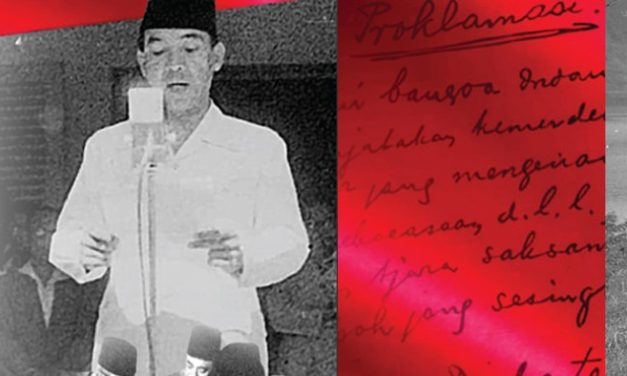 Proklamasi.
bangsa Indon
jatakan kemerde
jang mengenai
ekoeasaan, d.l.l.
tjara saksam
oh jang sesing